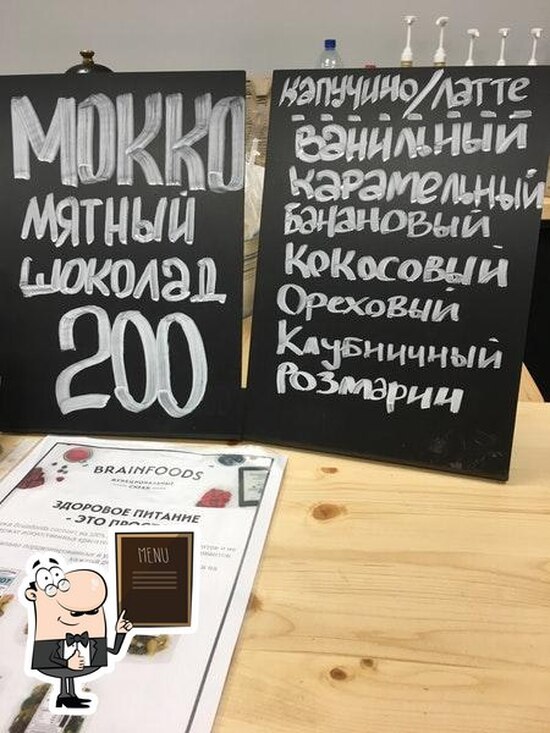 МОККО
МЯТНЫЙ
ШОКОЛАД
200
КАПУЧИНО/ЛАТТЕ
ВАНИЛЬНЫЙ
КАРАМЕЛЬНЫЙ
БАНАНОВЫЙ
КОКОСОВЫЙ
ОРЕХОВЫЙ
КЛУБНИЧНЫЙ
РОЗМАРИН
BRAINFOODS
ФУНКЦИОНАЛЬНЫЕ
СНЕКИ
ЗДОРОВОЕ ПИТАНИЕ
- ЭТО
MENU